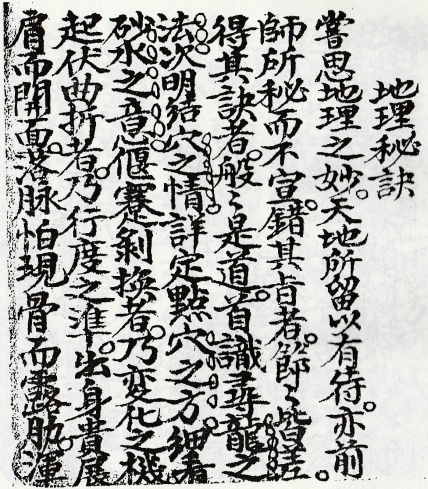 地理秘訣
嘗思地理之妙。天地所留以有待。亦前
師所秘而不宣。錯其旨者。節〻皆差。
得其訣者。般〻是道。首識尋龍之
法。次明結穴之情。詳定點穴之方。細看
砂水之意。偃蹇剝換者。乃变化之機
起伏曲折者。乃行度之準。出身貴展
肩而開面。落脉怕現骨而露肋。渾